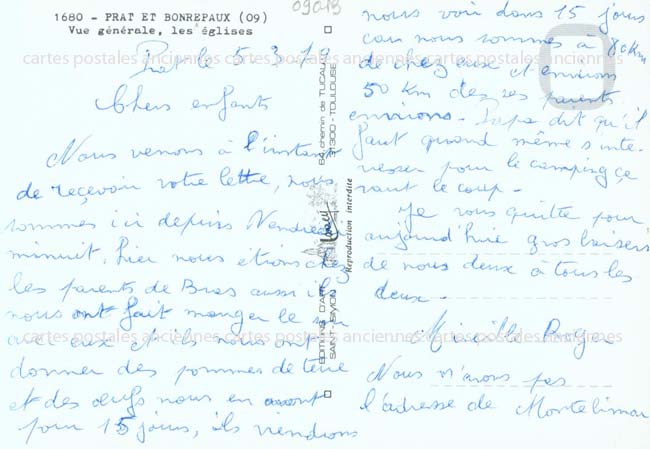 1680 - PRAT ET BONREPAUX (09)
Vue générale, les églises
09a18
Prat le 5 3 79
Chers enfants
Nous venons à l'instant
de reçevoir votre lettre, nous
sommes ici depuis Vendredi
minuit. hier nous etions chez
les parents de Bras aussi ils
nous ont fait manger le
avec eux et ils nous ont
donner des pommes de terre
et des œufs nous en avont
pour 15 jours, ils viendrons
EDITIONS D'ART
SAINT-SIMON
64, chemin de TUCAUT
31300 - TOULOUSE
Reproduction interdite
nous voir dans 15 jours
car nous sommes à 80 Km
de chez eux et environ
50 Km de ses parents
environs. Papa dit qu'il
faut quand même s'inte-
resser pour le camping ça
vaut le coup.
Je vous quitte pour
aujourd'hui gros baisers
de nous deux à tous les
deux.
Mireille Roger
Nous n'avons pas
l'adresse de Montelimar
cartes postales anciennes cartes postales anciennes cartes postales anciennes
cartes postales anciennes cartes postales anciennes cartes postales anciennes